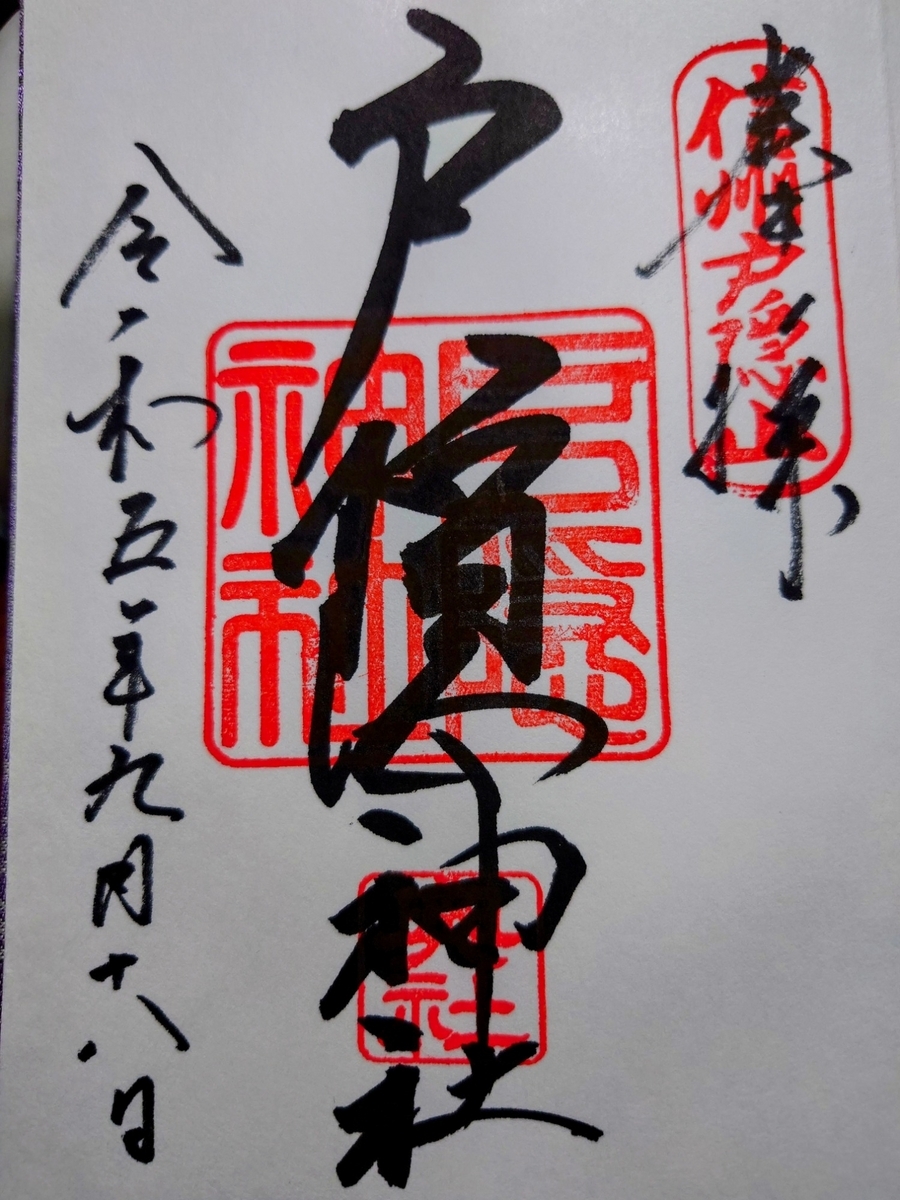 奉拝
信州戸隠山
戸隠神社
戸隠神社
令和五年九月十八日